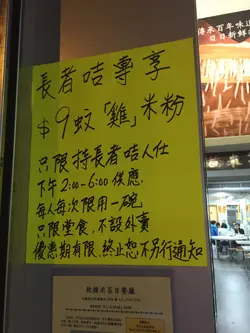 長者咭專享
$9蚊「雞」米粉
只限持長者咭人仕
下午2:00-6:00供應.
每人每次限用一碗
只限堂食,不設外賣
優惠期有限,終止恕不另行通知
傳來百年味
日日新鮮